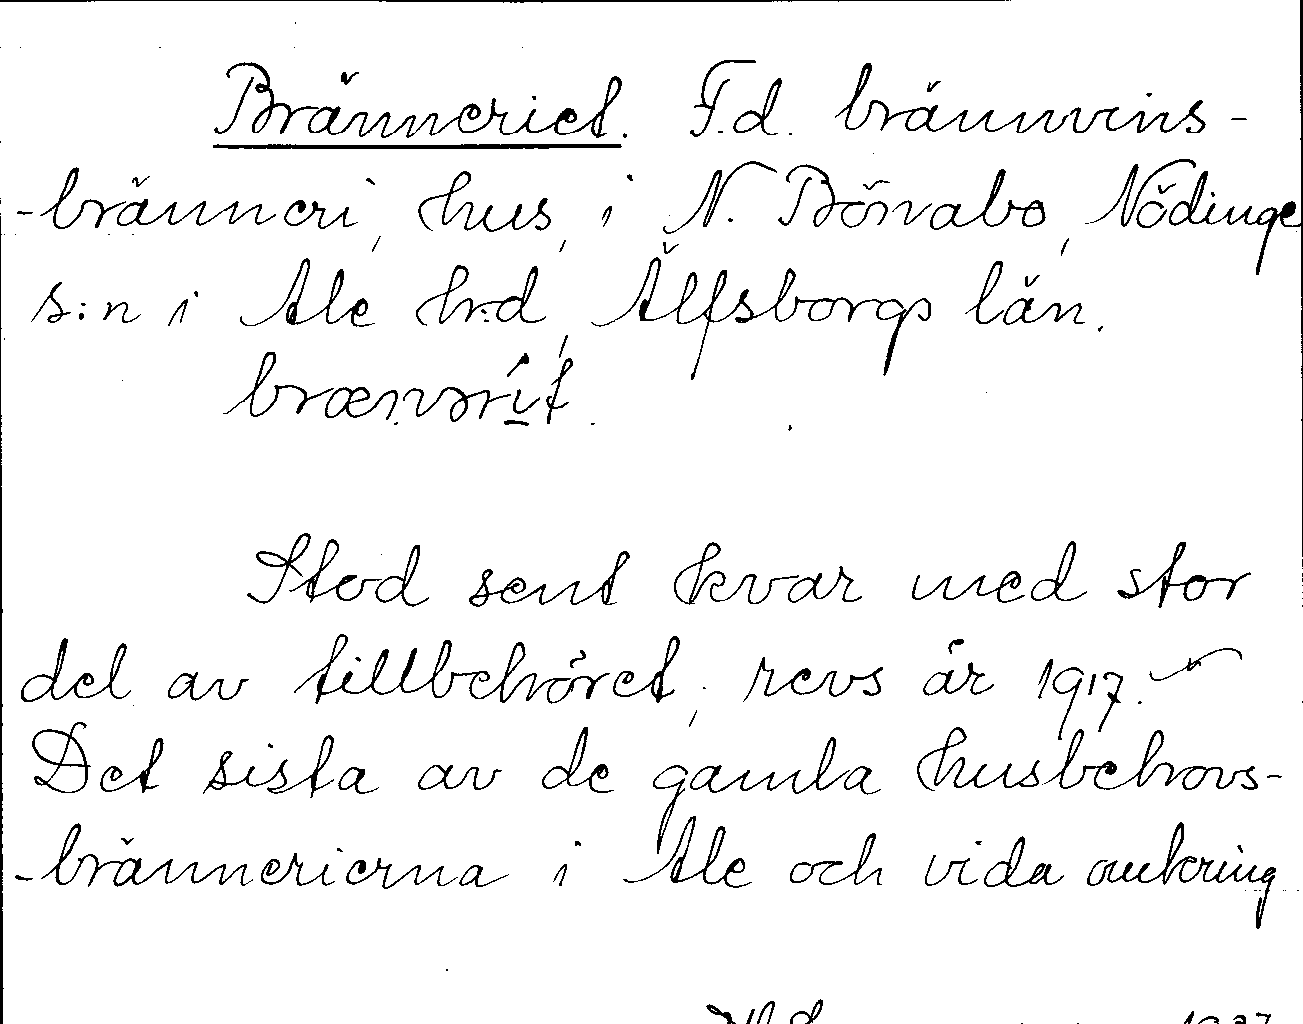 Bränneriet. F.d. brännvins-
-bränneri, hus, i N. Börvabo, Nödinge
s:n i Ale h:d, Älfsborgs län.
brænərít.
Stod sent kvar med stor
del av tillbehöret, revs år 1917.
Det sista av de gamla husbehovs-
-brännerierna i Ale och vida omkring